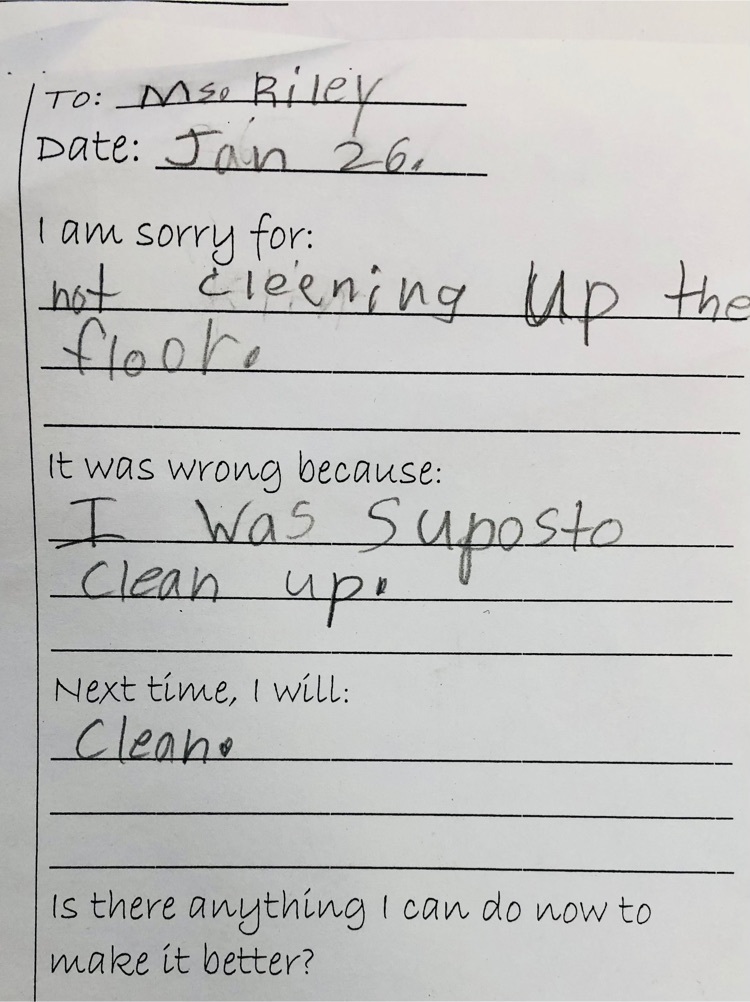 TO: Ms. Riley
Date: Jan 26.
I am sorry for:
not cleening up the
floor.
It was wrong because:
I was Suposto
clean up.
Next time, I will:
Clean.
Is there anything I can do now to
make it better?